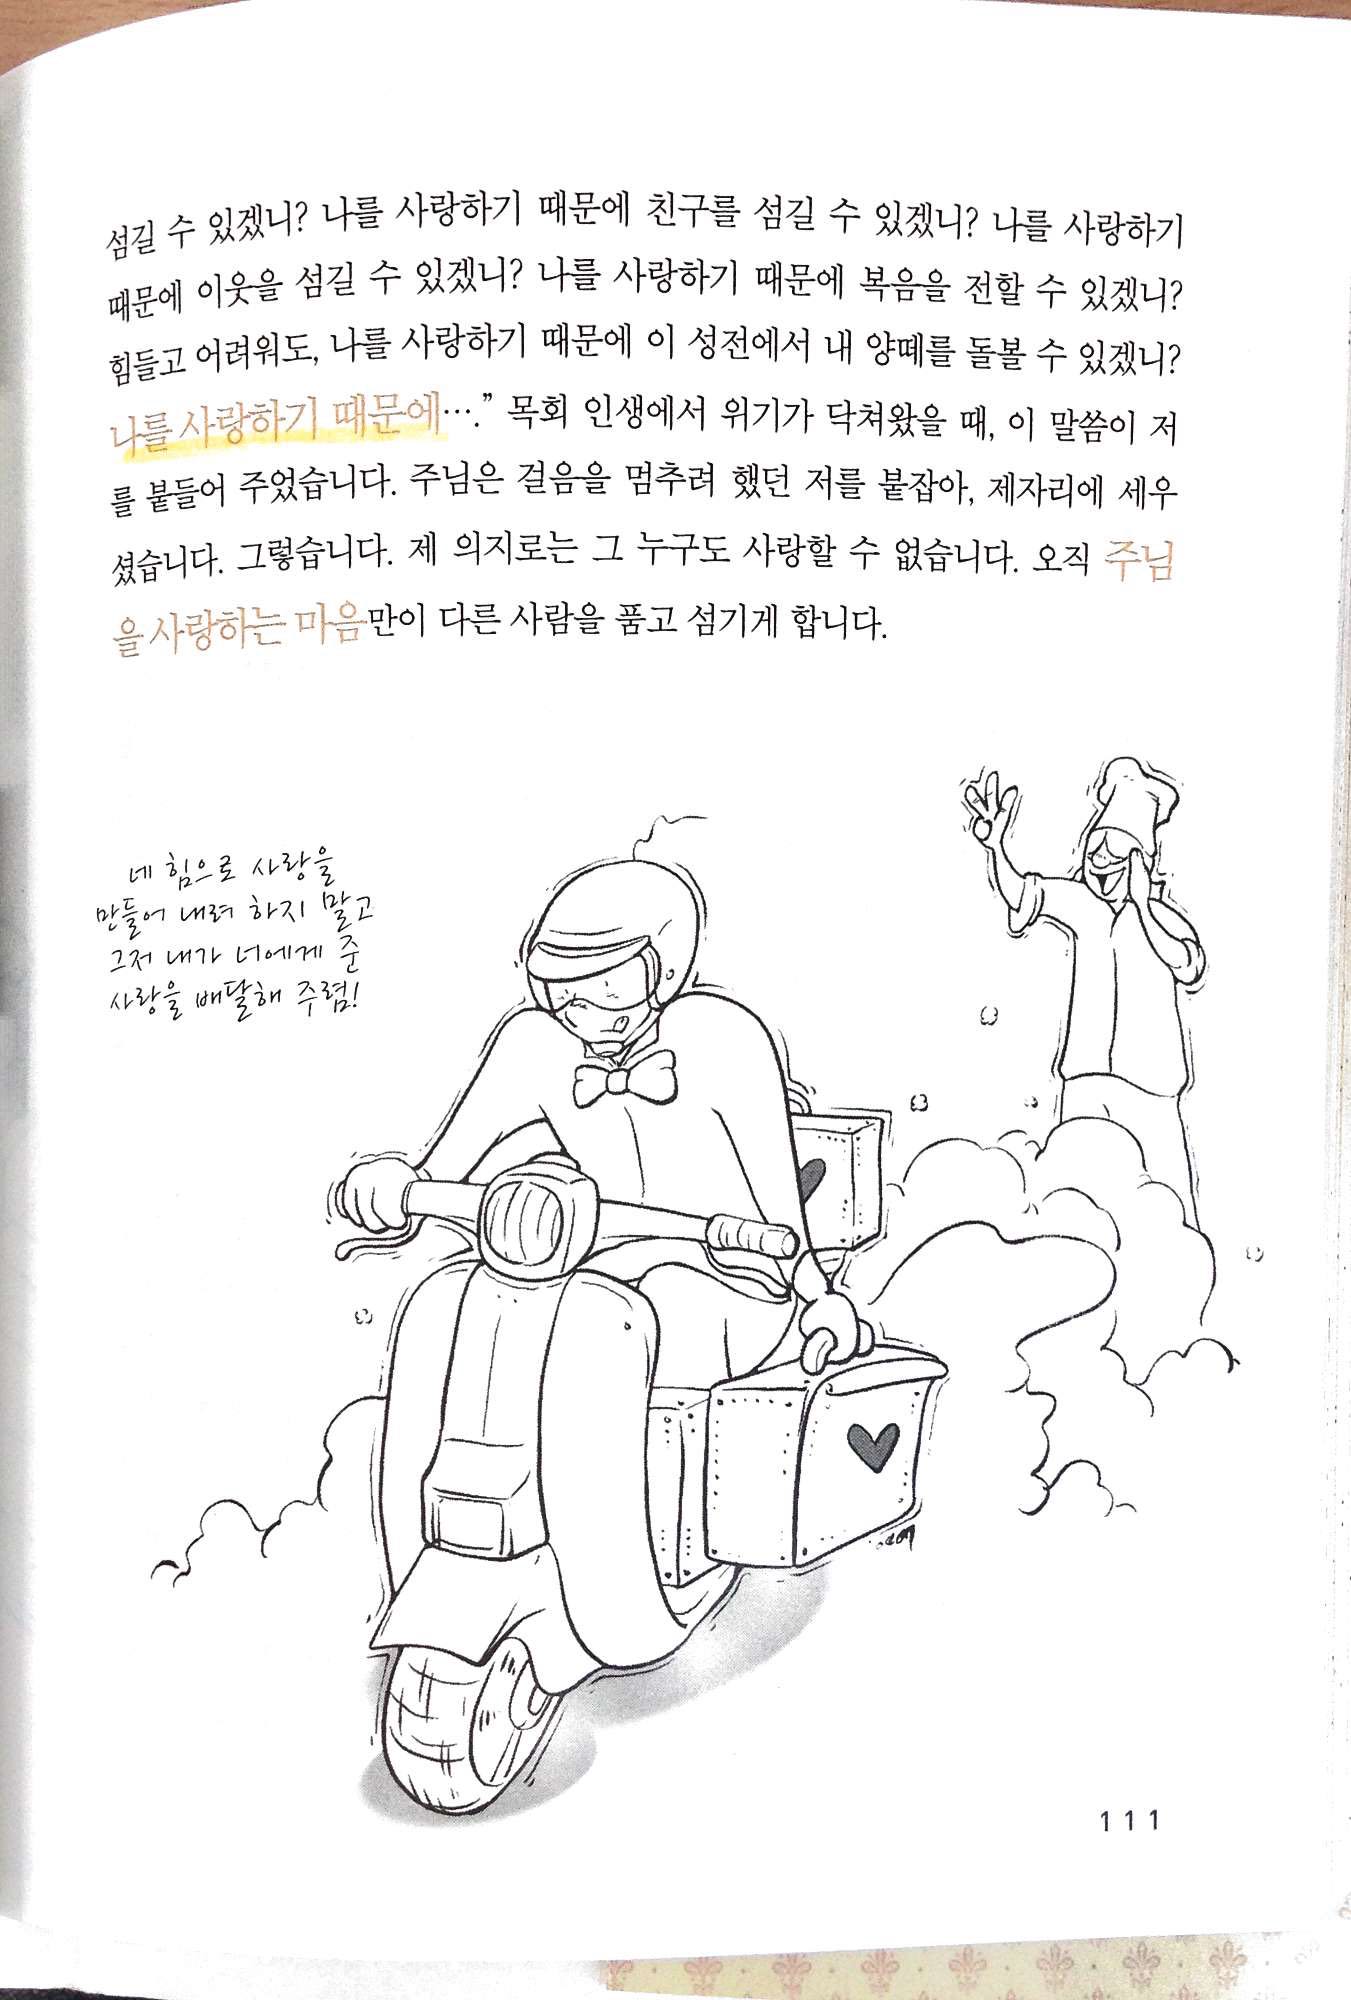 섬길 수 있겠니? 나를 사랑하기 때문에 친구를 섬길 수 있겠니? 나를 사랑하기
때문에 이웃을 섬길 수 있겠니? 나를 사랑하기 때문에 복음을 전할 수 있겠니?
힘들고 어려워도, 나를 사랑하기 때문에 이 성전에서 내 양떼를 돌볼 수 있겠니?
나를 사랑하기 때문에….” 목회 인생에서 위기가 닥쳐왔을 때, 이 말씀이 저
를 붙들어 주었습니다. 주님은 걸음을 멈추려 했던 저를 붙잡아, 제자리에 세우
셨습니다. 그렇습니다. 제 의지로는 그 누구도 사랑할 수 없습니다. 오직 주님
을 사랑하는 마음만이 다른 사람을 품고 섬기게 합니다.
네 힘으로 사랑을
만들어 내려 하지 말고
그저 내가 너에게 준
사랑을 배달해 주렴!
111